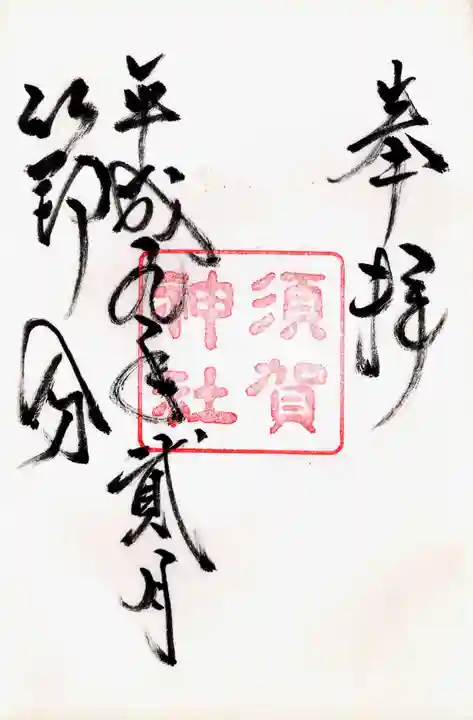 奉拝
須賀
神社
平成九年貳月
節分